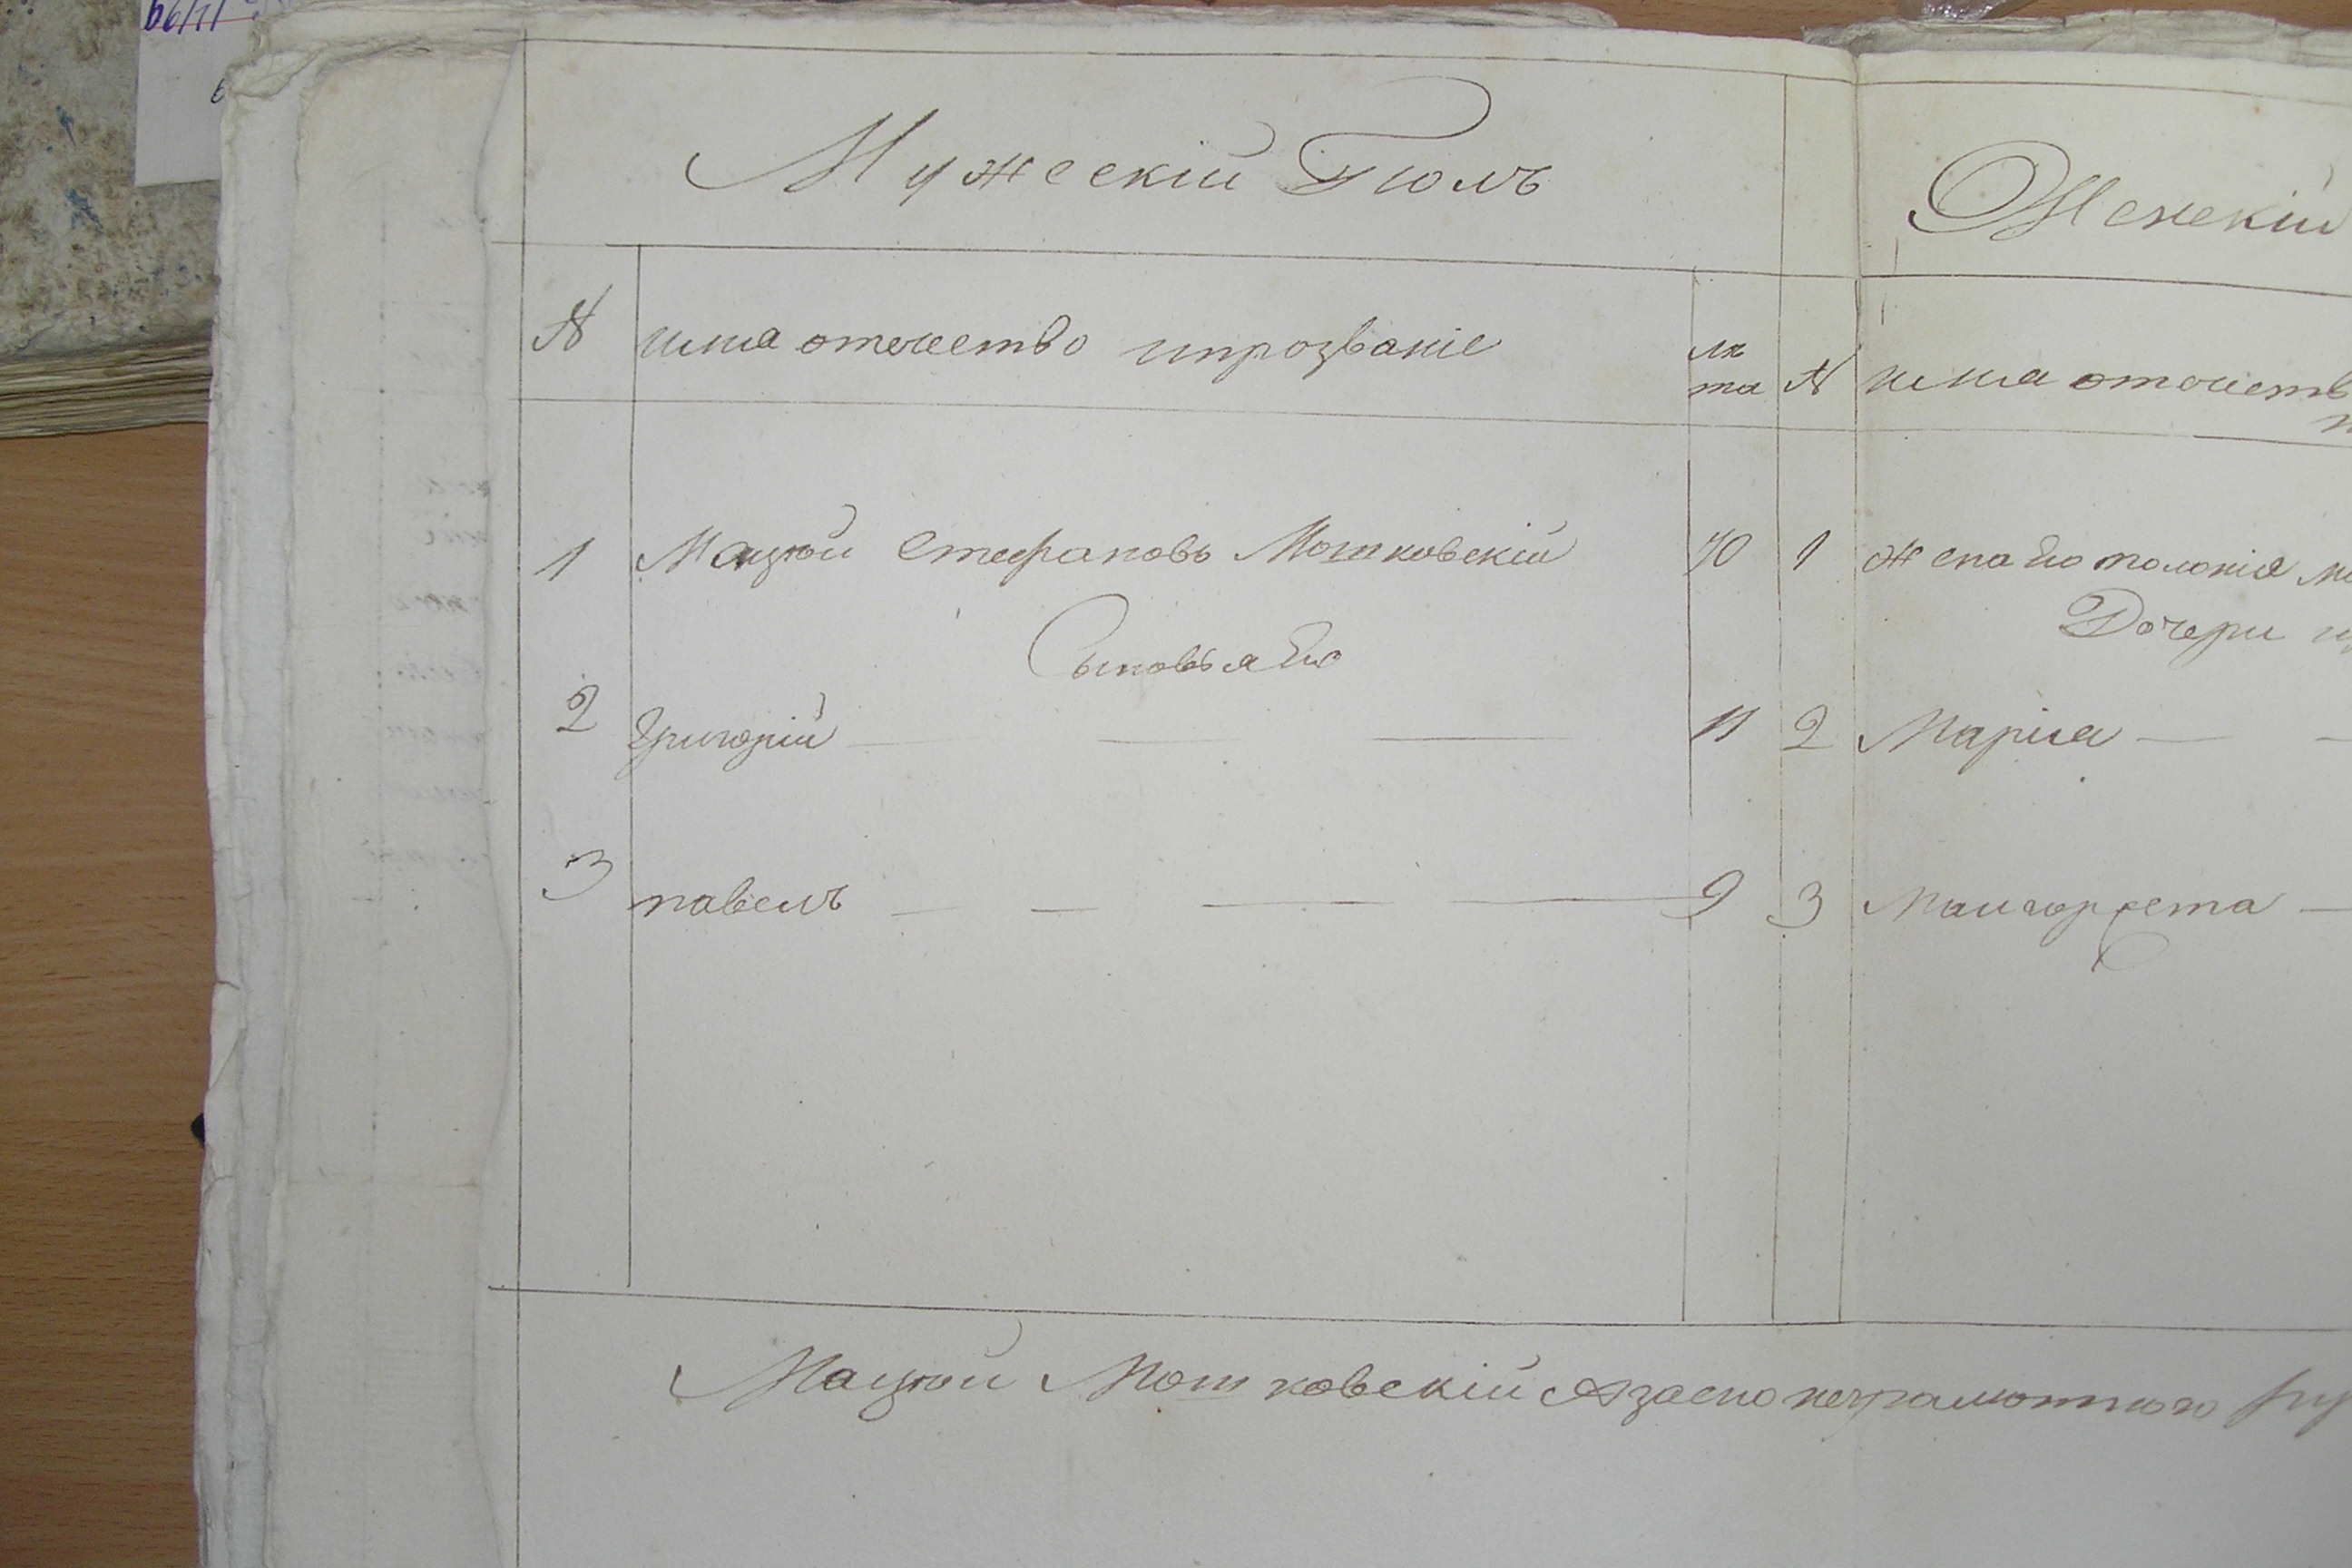 Мужескій Полъ
Женскій
№ имя отечество ипрозваніе лѣ
та № имя отечеств
1 Мацѣй Стефановъ Мошковскій 40 1 жена Его полонія
Сыновья Его
Дочери
2 Григорій 11 2 Марія
3 павелъ 9 3 Маигоржета
Мацѣй Мошковскій Азаего неграмотного ру